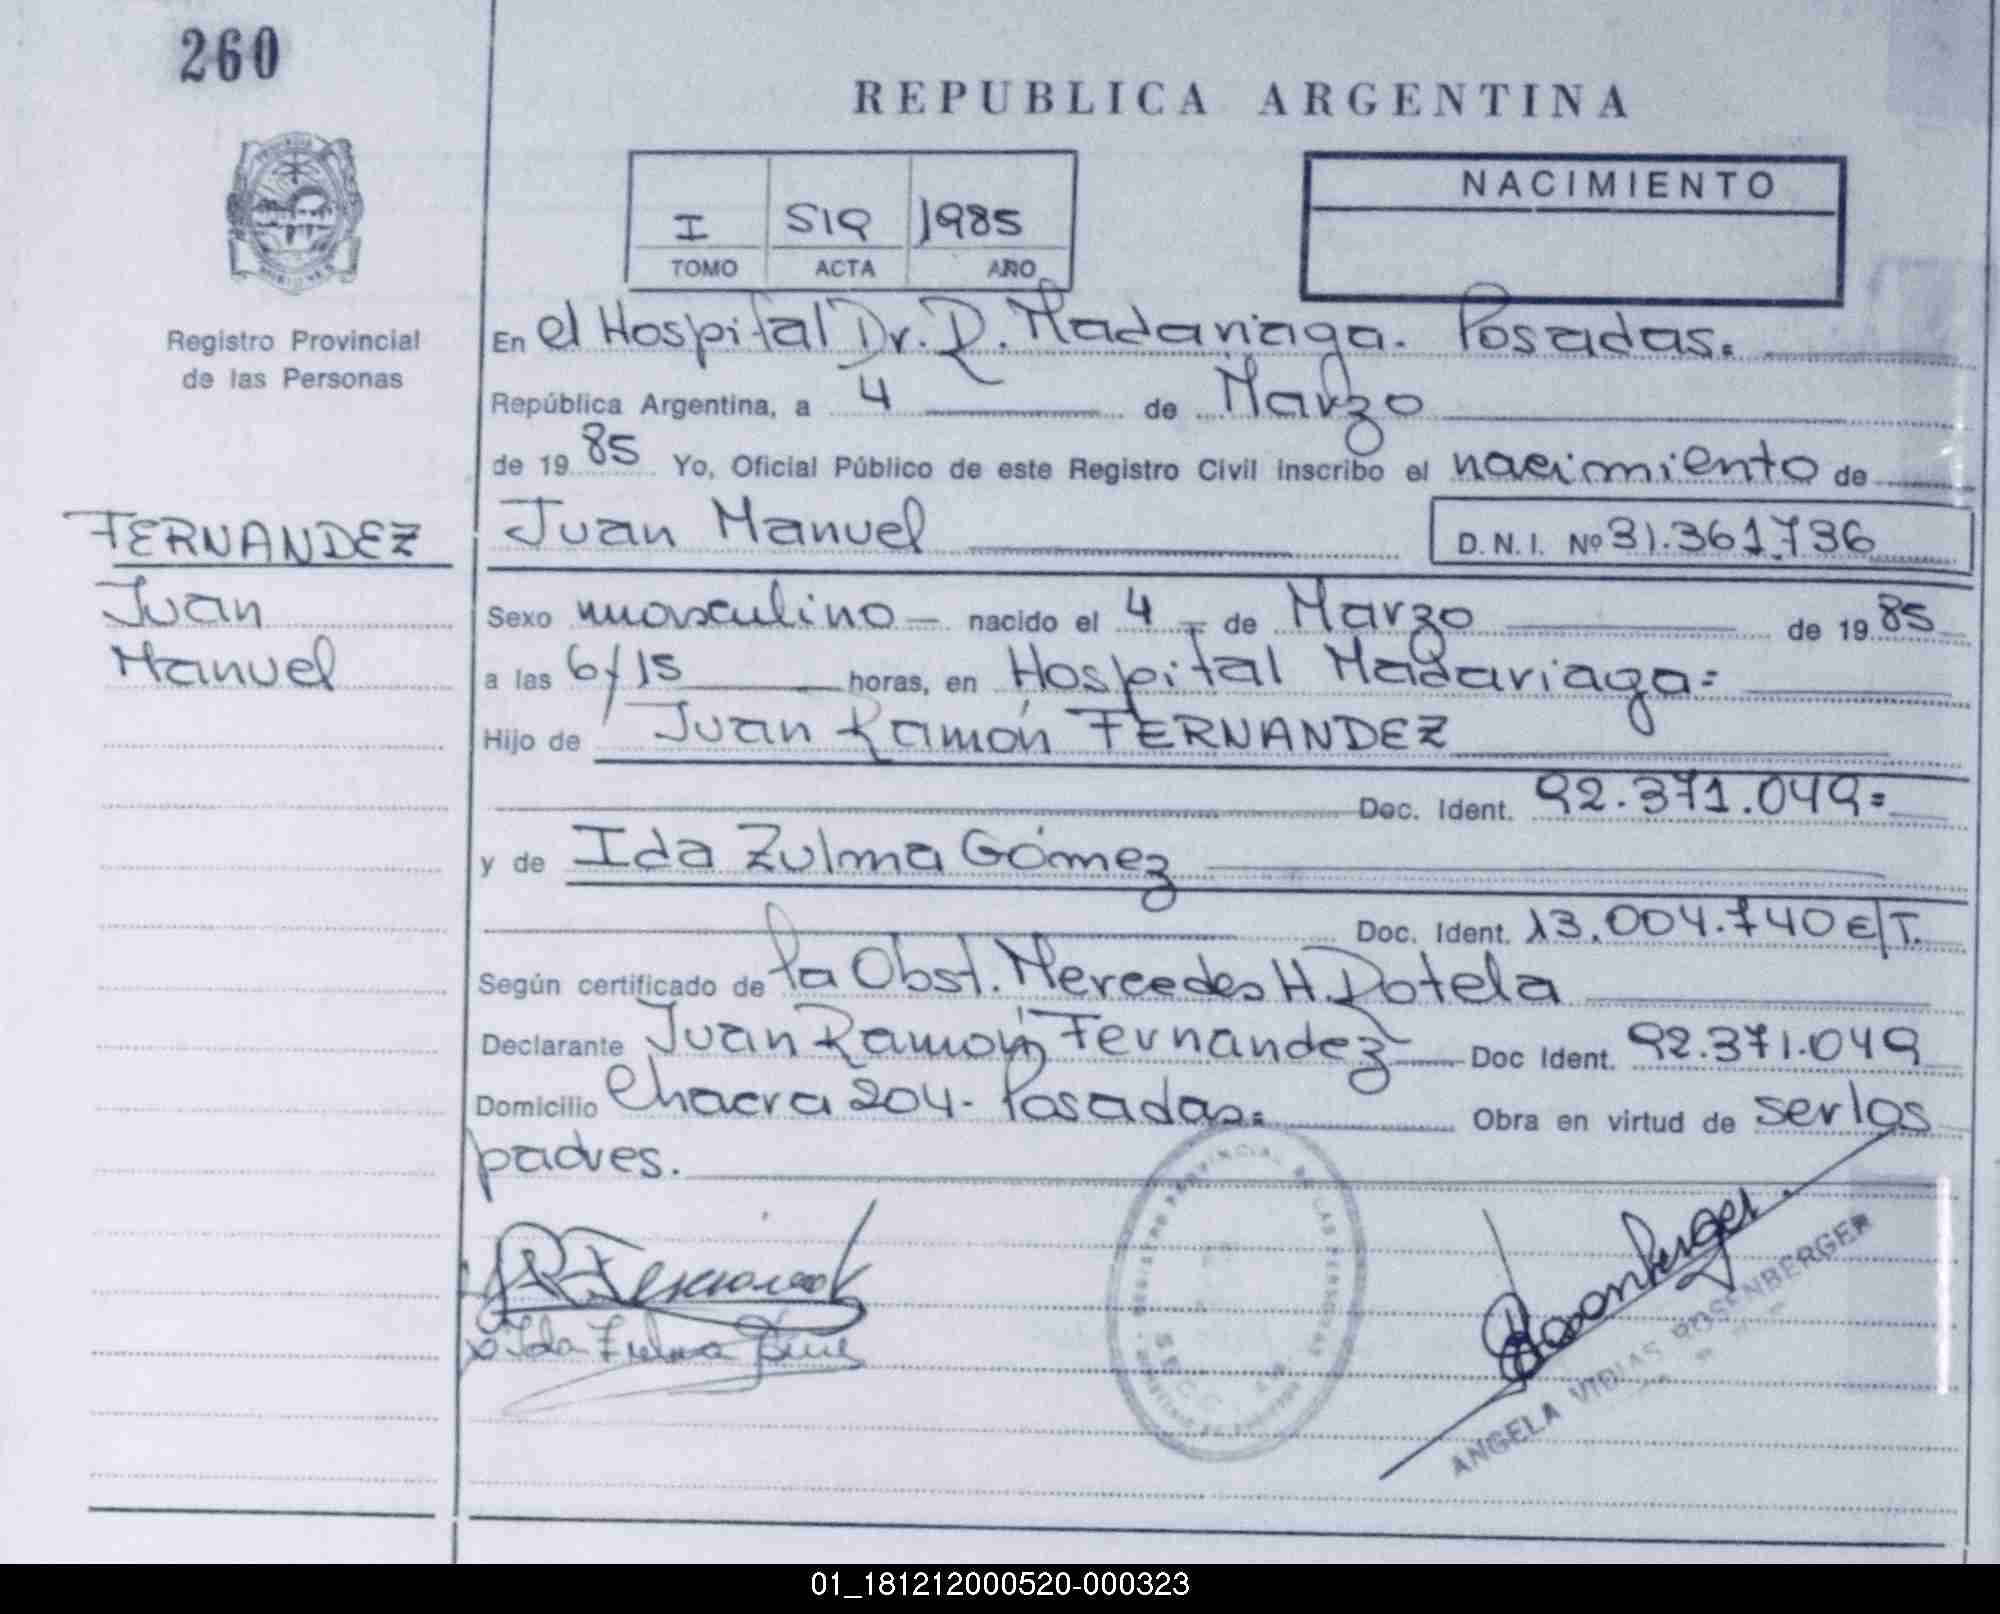 260
REPUBLICA ARGENTINA
I 519 1985
TOMO ACTA AÑO
NACIMIENTO
Registro Provincial
de las Personas
FERNANDEZ
Juan
Manuel
En el Hospital Dr. R. Madariaga. Posadas.
República Argentina, a 4 de Marzo
de 1985 Yo, Oficial Público de este Registro Civil inscribo el nacimiento de
Juan Manuel D.N.I. Nº 31.361.736
Sexo masculino nacido el 4 de Marzo de 1985
a las 6/15 horas, en Hospital Madariaga=
Hijo de Juan Ramón FERNANDEZ
Doc. Ident. 92.371.049=
y de Ida Zulma Gómez
Doc. Ident. 13.004.740 E/T.
Según certificado de la Obst. Mercedes H. Dotela
Declarante Juan Ramón Fernandez Doc Ident. 92.371.049
Domicilio Chacra 204- Posadas= Obra en virtud de ser los
padres.
Ida Zulma
REGISTRO PROVINCIAL DE LAS PERSONAS
ANGELA VIDIAS ROSENBERGER
01_181212000520-000323